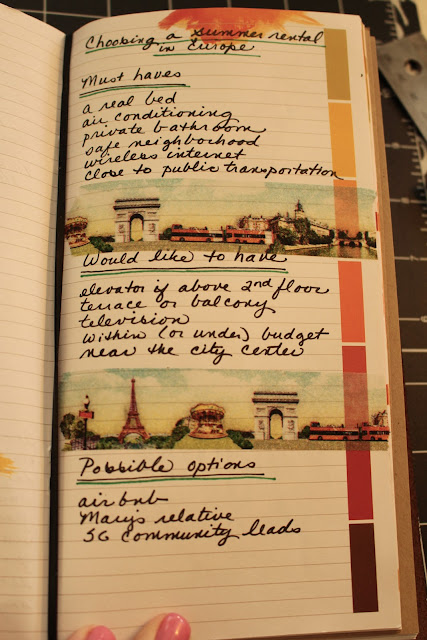 Choosing a summer rental
in Europe
Must haves
a real bed
air conditioning
private bathroom
safe neighborhood
wireless internet
close to public transportation
Would like to have
elevator if above 2nd floor
terrace or balcony
television
within (or under) budget
near the city center
Possible options
airbnb
Mary's relative
SG Community leads